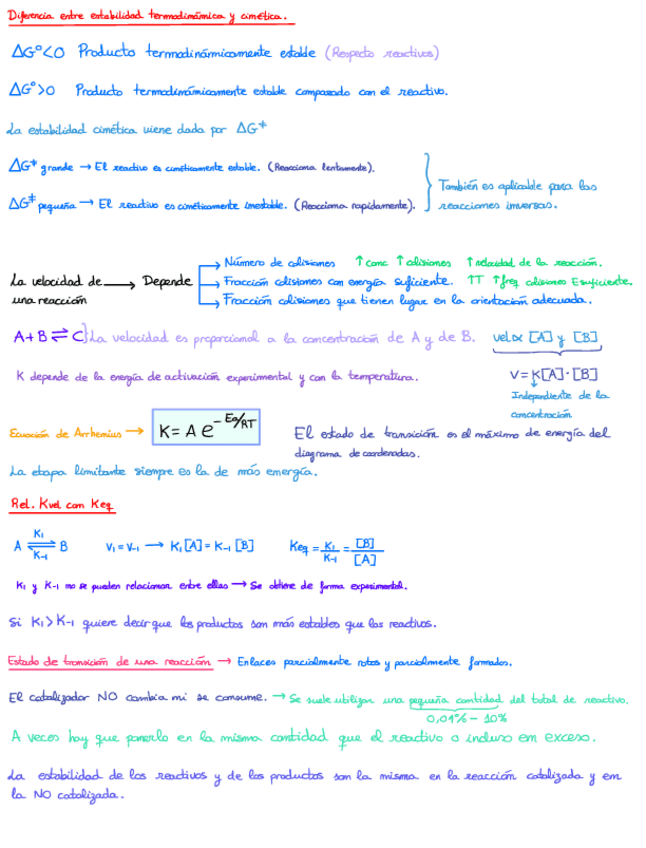 Diferencia entre estabilidad termodinámica y cinética.
ΔG°<0 Producto termodinámicamente estable (Respecto reactivos)
ΔG°>0 Producto termodinámicamente estable comparado con el reactivo.
La estabilidad cinética viene dada por ΔG‡
ΔG‡ grande → El reactivo es cinéticamente estable. (Reacciona lentamente).
ΔG‡ pequeña → El reactivo es cinéticamente inestable. (Reacciona rapidamente).
También es aplicable para las
reacciones inversas.
La velocidad de → Depende
una reacción
Número de colisiones ↑ conc ↑ colisiones ↑ velocidad de la reacción.
Fracción colisiones con energía suficiente. ↑T ↑ freq colisiones E suficiente.
Fracción colisiones que tienen lugar en la orientación adecuada.
A + B ⇌ C} La velocidad es proporcional a la concentración de A y de B. vel ∝ [A] y [B]
K depende de la energía de activación experimental y con la temperatura. v = K[A]·[B]
Independiente de la
concentración
Ecuación de Arrhenius → K = A e^(-Ea/RT)
El estado de transición es el máximo de energía del
diagrama de coordenadas.
La etapa limitante siempre es la de más energía.
Rel. Kvel con Keq
A ⇌ B K₁ K₋₁ v₁ = v₋₁ → K₁[A] = K₋₁ [B] Keq = K₁/K₋₁ = [B]/[A]
K₁ y K₋₁ no se pueden relacionar entre ellas → Se obtiene de forma experimental.
Si K₁ > K₋₁ quiere decir que los productos son más estables que los reactivos.
Estado de transición de una reacción → Enlaces parcialmente rotos y parcialmente formados.
El catalizador NO cambia ni se consume. → Se suele utilizar una pequeña cantidad del total de reactivo.
0,01% - 10%
A veces hay que ponerlo en la misma cantidad que el reactivo o incluso en exceso.
La estabilidad de los reactivos y de los productos son la misma en la reacción catalizada y en
la NO catalizada.